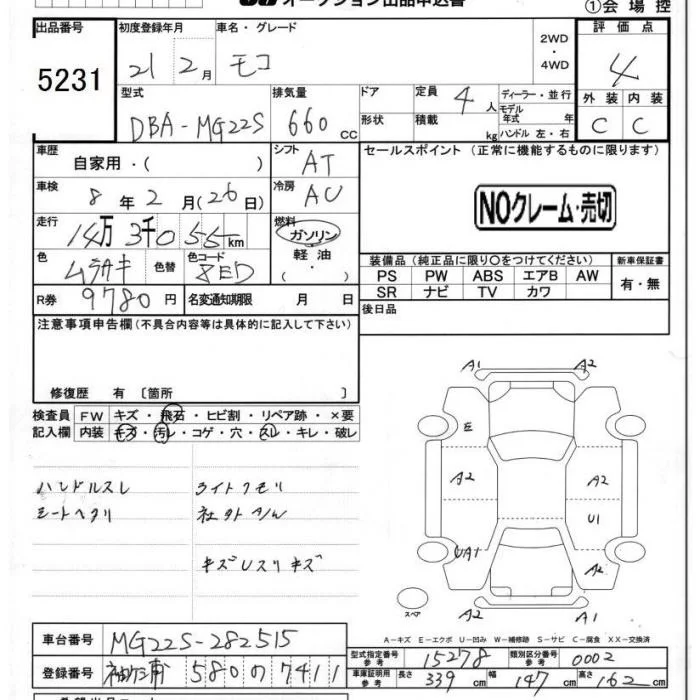 オークション出品申込書
①会場控
出品番号
5231
初度登録年月
21 2月
車名・グレード
モコ
2WD・4WD
評価点
4
外装 内装
C C
型式
DBA-MG22S
排気量
660 cc
ドア
形状
定員
4人
積載
kg
ディーラー・並行
モデル年式 年
ハンドル 左・右
車歴
自家用・( )
シフト
AT
セールスポイント (正常に機能するものに限ります)
NOクレーム・売切
車検
8年2月(26日)
冷房
走行
14万3千055km
燃料
ガソリン
軽油
・( )
色
ムラサキ
色替
色コード
R券
9780円
名変通知期限 月 日
装備品 (純正品に限り〇をつけてください)
PS PW ABS エアB AW
SR ナビ TV カワ
新車保証書
有・無
後日品
注意事項申告欄(不具合内容等は具体的に記入して下さい)
修復歴 有〔箇所 〕
検査員記入欄
FW キズ・飛石・ヒビ割・リペア跡・×要
内装 キズ・汚レ・コゲ・穴・スレ・キレ・破レ
ハンドルスレ
シートヘタリ
ライトクモリ
キズU スリキズ
A1 A2
E
A2 A2
U1
UA1 A2
スペア
A2 A1
A-キズ E-エクボ U-凹み W-補修跡 S-サビ C-腐食 XX-交換済
車台番号
MG22S-282515
登録番号
580 の 7411
型式指定番号 参考
15278
類別区分番号 参考
0002
車庫証明用 参考
長さ 339 cm
幅 147 cm
高さ 162 cm